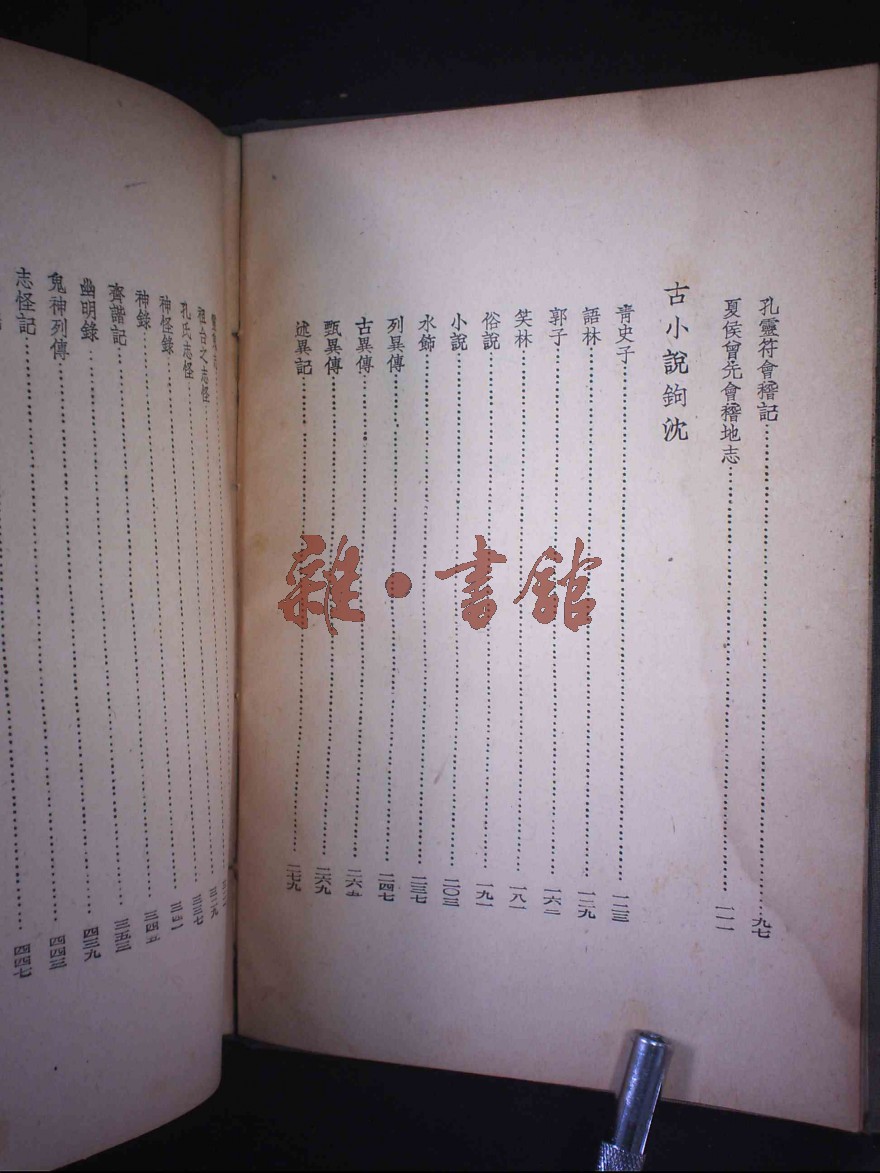 孔靈符會稽記……九七
夏侯曾先會稽地志……一一一
古小說鉤沈
青史子……一二三
語林……一二九
郭子……一六一
笑林……一八一
俗說……一九一
小說……二〇三
水飾……二三七
列異傳……二四七
古異傳……二六五
甄異傳……二六九
述異記……二七九
祖台之志怪……三二九
孔氏志怪……三三七
神怪錄……三四一
神錄……三四五
齊諧記……三五三
幽明錄……四三九
鬼神列傳……四四三
志怪記……四四七
雜·書館